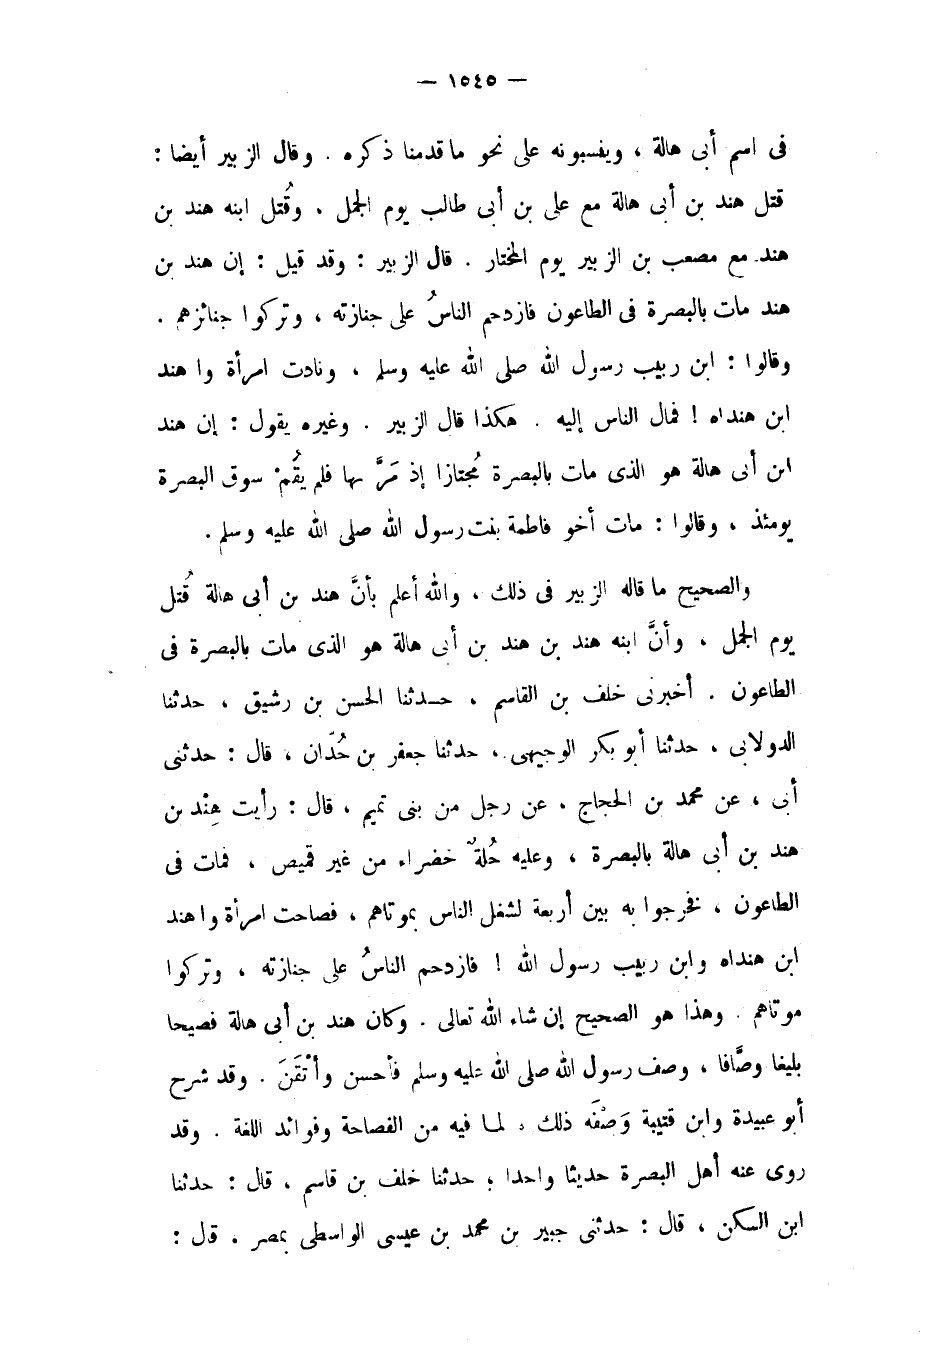 — ١٥٤٥ —
فى اسم أبى هالة ، وينسبونه على نحو ما قدمنا ذكره . وقال الزبير أيضا :
قتل هند بن أبى هالة مع على بن أبى طالب يوم الجمل . وقُتل ابنه هند بن
هند مع مصعب بن الزبير يوم المختار . قال الزبير : وقد قيل : إن هند بن
هند مات بالبصرة فى الطاعون فازدحم الناسُ على جنازته ، وتركوا جنائزهم .
وقالوا : ابن ربيب رسول الله صلى الله عليه وسلم ، ونادت امرأة وا هند
ابن هنداه ! فمال الناس إليه . هكذا قال الزبير . وغيره يقول : إن هند
ابن أبى هالة هو الذى مات بالبصرة مُجتازا إذ مَرَّ بها فلم يقُمْ سوق البصرة
يومئذ ، وقالوا : مات أخو فاطمة بنت رسول الله صلى الله عليه وسلم .
والصحيح ما قاله الزبير فى ذلك ، والله أعلم بأنَّ هند بن أبى هالة قُتل
يوم الجمل ، وأنَّ ابنه هند بن هند بن أبى هالة هو الذى مات بالبصرة فى
الطاعون . أخبرنى خلف بن القاسم ، حدثنا الحسن بن رشيق ، حدثنا
الدولابى ، حدثنا أبو بكر الوجيهى ، حدثنا جعفر بن حُدّان ، قال : حدثنى
أبى ، عن محمد بن الحجاج ، عن رجل من بنى تميم ، قال : رأيت هِنْد بن
هند بن أبى هالة بالبصرة ، وعليه حُلةٌ خضراء من غير قميص ، فمات فى
الطاعون ، فخرجوا به بين أربعة لشغل الناس بموتاهم ، فصاحت امرأة وا هند
ابن هنداه وابن ربيب رسول الله ! فازدحم الناسُ على جنازته ، وتركوا
موتاهم . وهذا هو الصحيح إن شاء الله تعالى . وكان هند بن أبى هالة فصيحا
بليغا وصَّافا ، وصف رسول الله صلى الله عليه وسلم فأحسن وأتْقَنَ . وقد شرح
أبو عبيدة وابن قتيبة وَصْفَه ذلك ، لما فيه من الفصاحة وفوائد اللغة . وقد
روى عنه أهل البصرة حديثا واحدا ؛ حدثنا خلف بن قاسم ، قال : حدثنا
ابن السكن ، قال : حدثنى جبير بن محمد بن عيسى الواسطى بمصر . قال :